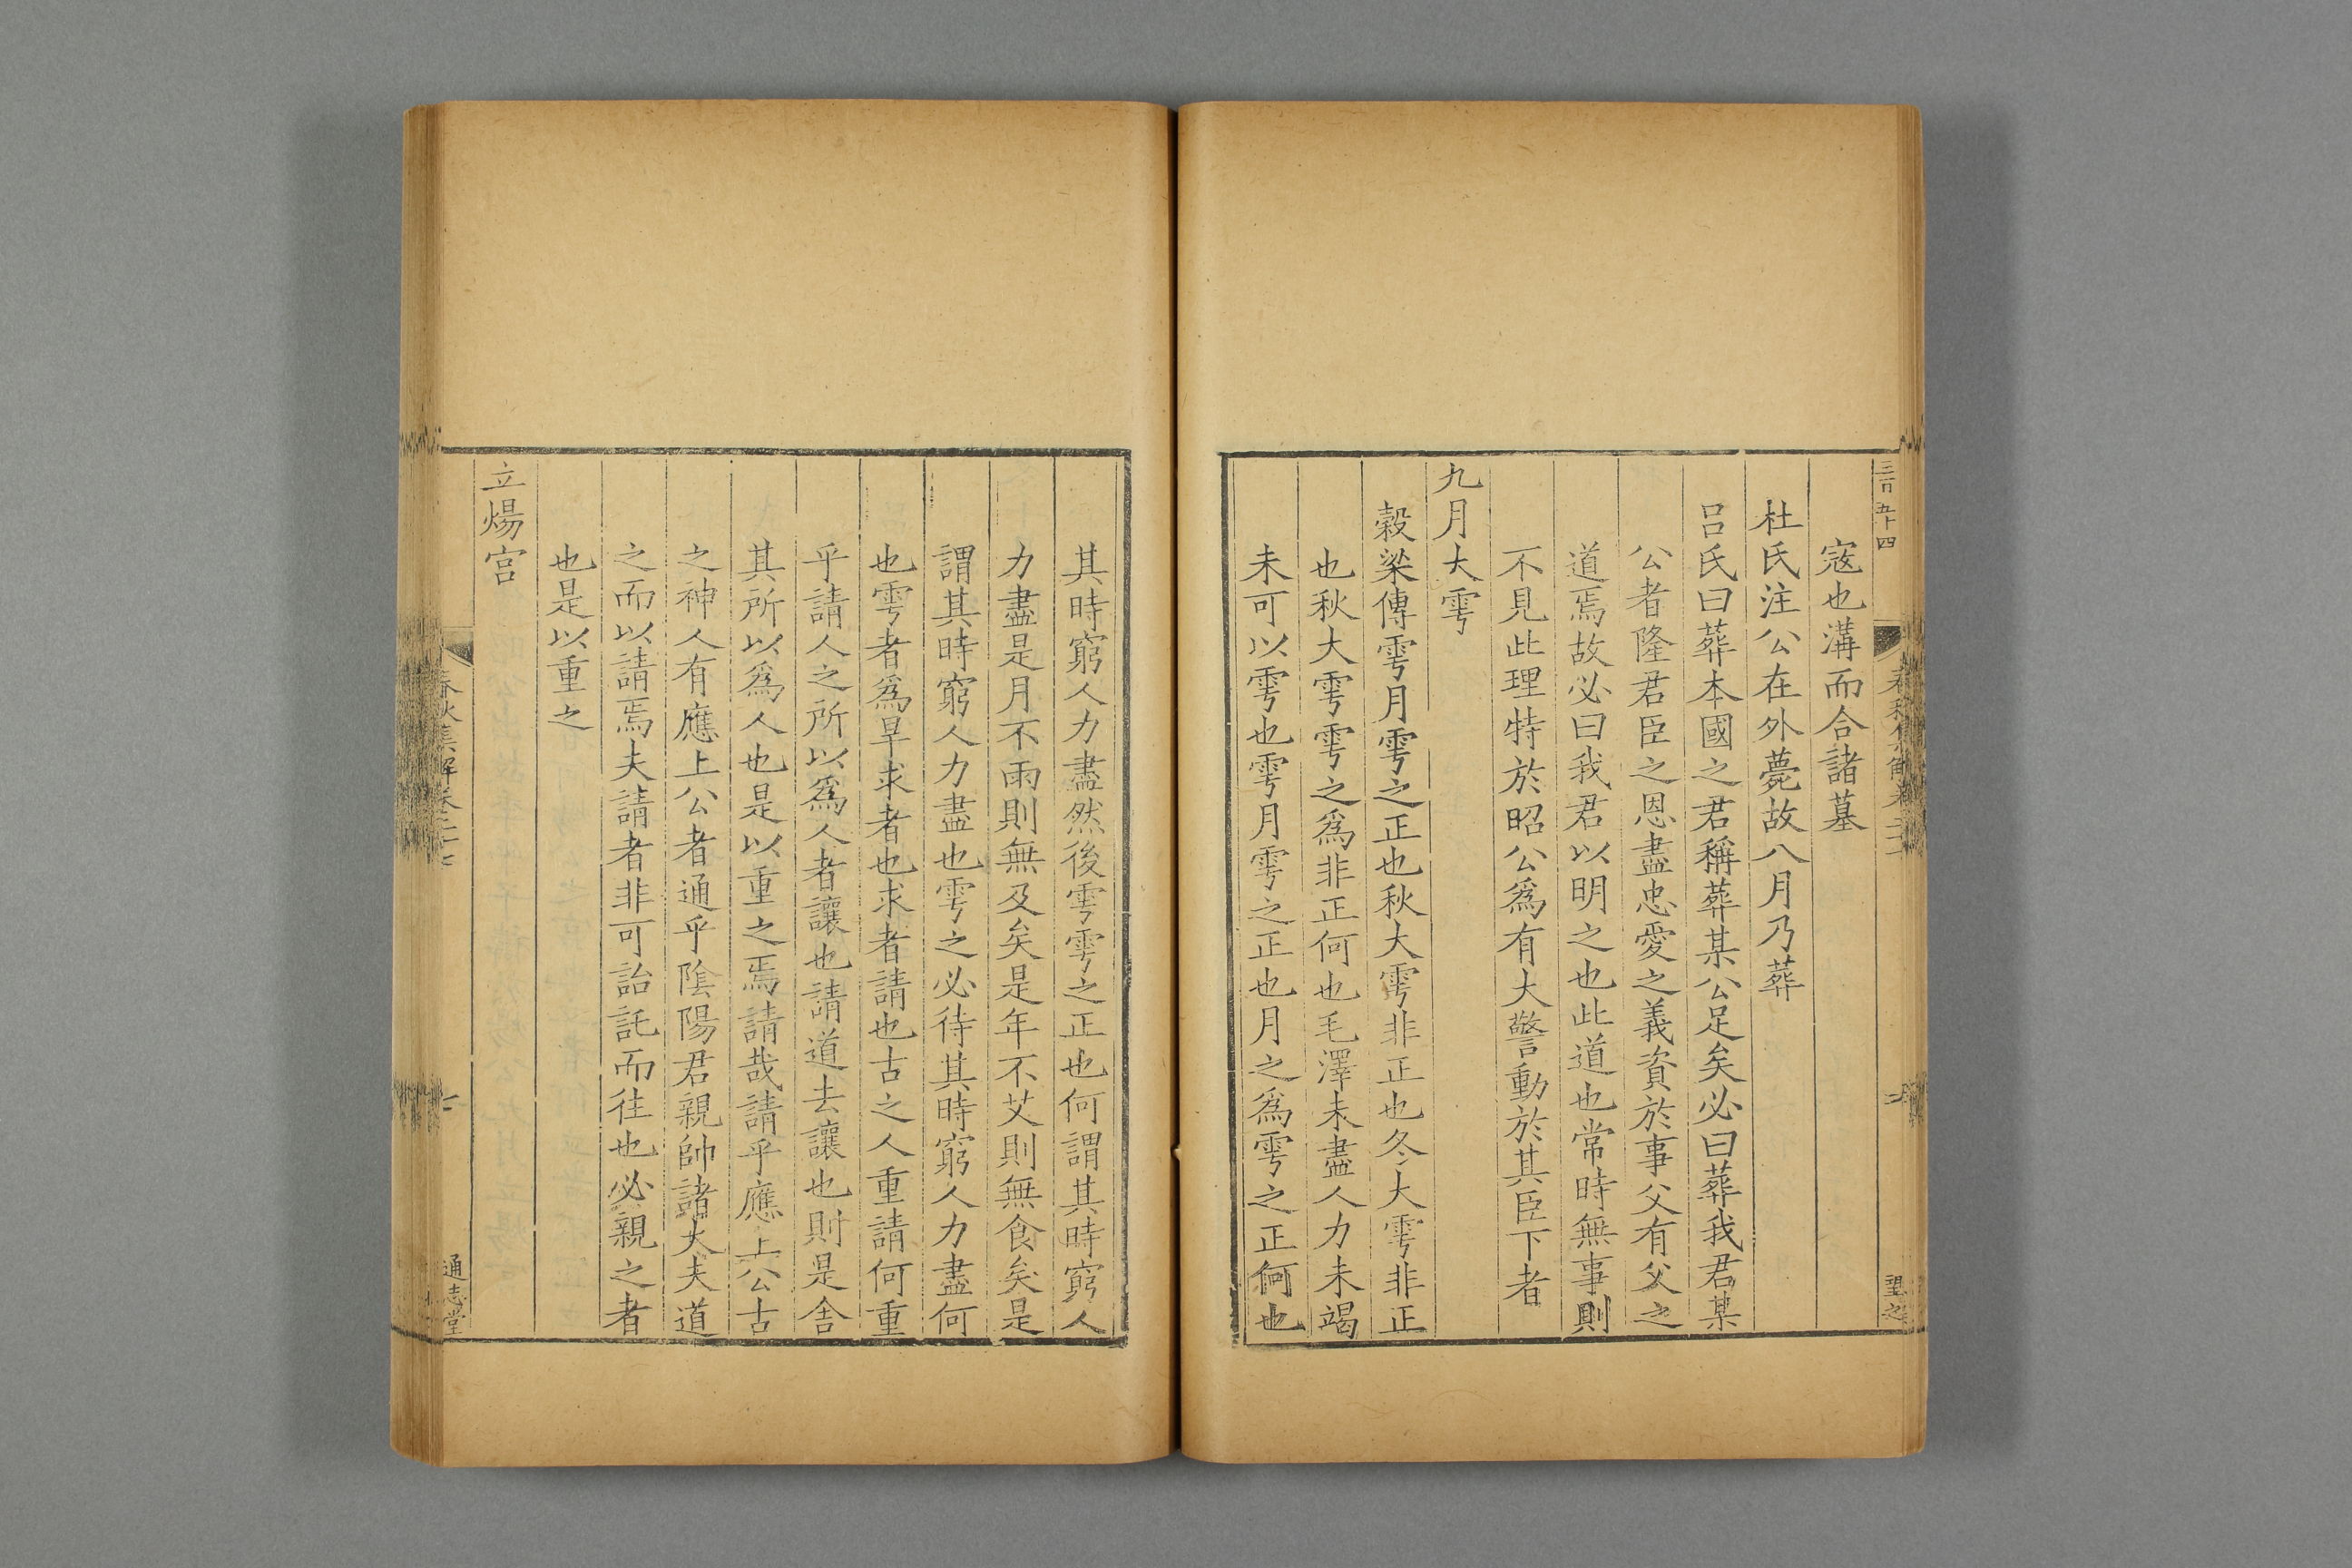 三百五十四
寇也溝而合諸墓
杜氏注公在外薨故八月乃葬
吕氏曰葬本國之君稱葬某公足矣必曰葬我君某
公者隆君臣之恩盡忠愛之義資於事父有父之
道焉故必曰我君以明之也此道也常時無事則
不見此理特於昭公爲有大警動於其臣下者
九月大雩
穀梁傳雩月雩之正也秋大雩非正也冬大雩非正
也秋大雩雩之爲非正何也毛澤未盡人力未竭
未可以雩也雩月雩之正也月之爲雩之正何也
其時窮人力盡然後雩雩之正也何謂其時窮人
力盡是月不雨則無及矣是年不艾則無食矣是
謂其時窮人力盡也雩之必待其時窮人力盡何
也雩者爲旱求者也求者請也古之人重請何重
乎請人之所以爲人者讓也請道去讓也則是舍
其所以爲人也是以重之焉請哉請乎應上公古
之神人有應上公者通乎陰陽君親帥諸大夫道
之而以請焉夫請者非可詒託而往也必親之者
也是以重之
立煬宮
春秋集解卷二十七
七
通志堂